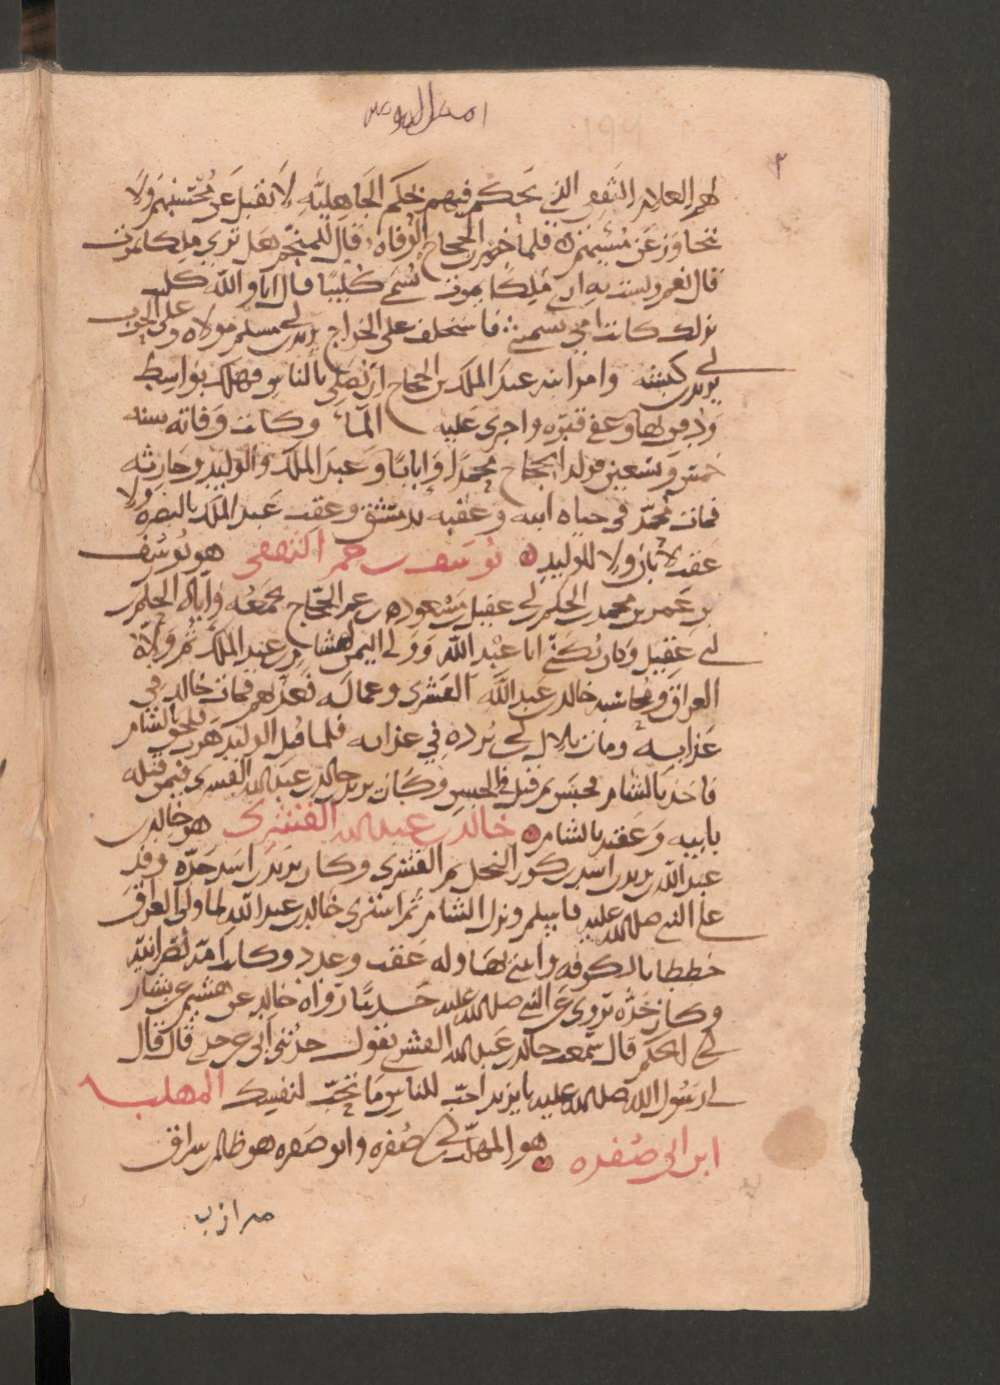 ٢
لهم الغلام الثقفي الذي يحكم فيهم بحكم الجاهلية لا يقبل عن محسنهم ولا
يتجاوز عن مسيئهم فلما حضرت الحجاج الوفاة قال للمنجم هل ترى ملكا يموت
قال نعم ولست به ارى ملكا يموت تسمى كليبا قال انا والله كليب
بذلك كانت امي تسميني فاستخلف على الخراج يزيد بن ابي مسلم مولاه وعلى الحرب
يزيد بن ابي كبشة وامر ابنه عبد الملك بن الحجاج ان يصلي بالناس فهلك بواسط
ودفن بها وعفي قبره واجرى عليه الماء وكانت وفاته سنة
خمس وتسعين فولد الحجاج محمدا وابانا وعبد الملك والوليد وجارية
فمات محمد في حياة ابيه وعقبه بدمشق وعقب عبد الملك بالبصرة ولا
عقب لابان ولا للوليد يوسف بن عمر الثقفي هو يوسف
بن عمر بن محمد بن الحكم بن ابي عقيل بن مسعود بن عم الحجاج يجمعه واياه الحكم بن
ابي عقيل وكان يكنى ابا عبد الله وولي اليمن لهشام بن عبد الملك ثم ولاه
العراق ومحاسبة خالد بن عبد الله القسري وعماله فعذبهم فمات خالد في
عذابه ومات بلال بن ابي بردة في عذابه فلما قتل الوليد هرب فلحق بالشام
فاخذ بالشام فحبس ثم قتل في الحبس وكان يزيد بن خالد بن عبد الله القسري فيمن قتله
بابيه وعقبه بالشام خالد بن عبد الله القسري هو خالد بن
عبد الله بن يزيد بن اسد بن كرز البجلي ثم القسري وكان يزيد بن اسد جده وفد
على النبي صلى الله عليه فاسلم ونزل الشام ثم اشترى خالد بن عبد الله لما ولي العراق
خططا بالكوفة وابتنى بها وله عقب وعدد وكانت امه نصرانية
وكان جده يروي عن النبي صلى الله عليه حديثا رواه خالد عن هشيم عن سيار
ابي الحكم قال سمعت خالد بن عبد الله القسري يقول حدثني ابي عن جدي قال قال
لي رسول الله صلى الله عليه يا يزيد احب للناس ما تحب لنفسك المهلب
ابن ابي صفرة هو المهلب بن ابي صفرة وابو صفرة هو ظالم بن سراق
من ازد